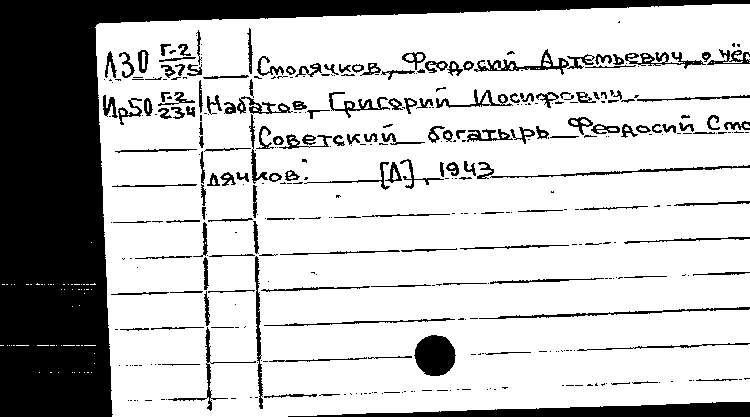 Л30 Г-2/375 Смолячков, Феодосий Артемьевич, о нём
Ир50 Г-2/234 Набатов, Григорий Иосифович.
Советский богатырь Феодосий Смо-
лячков. [Л.], 1943